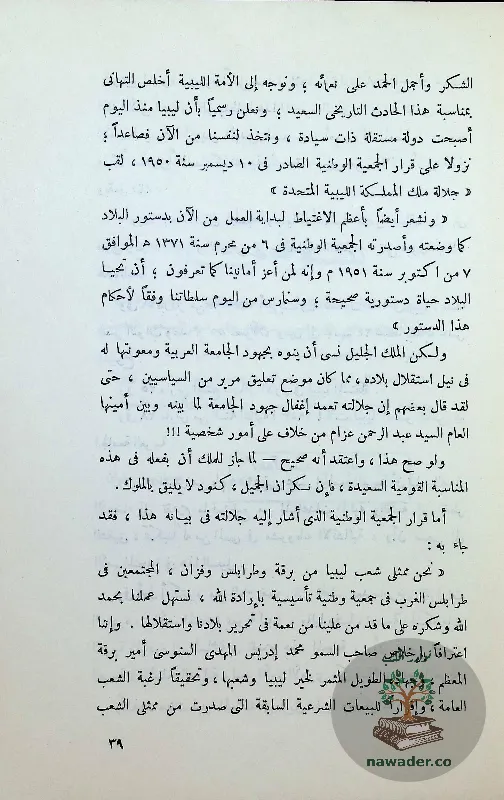 الشكر وأجمل الحمد على نعمائه ؛ ونوجه إلى الأمة الليبية أخلص التهانى
بمناسبة هذا الحادث التاريخى السعيد ؛ ونعلن رسمياً بأن ليبيا منذ اليوم
أصبحت دولة مستقلة ذات سيادة ، ونتخذ لنفسنا من الآن فصاعداً ؛
نزولا على قرار الجمعية الوطنية الصادر فى ١٠ ديسمبر سنة ١٩٥٠ ، لقب
« جلالة ملك المملكة الليبية المتحدة »
« ونشعر أيضاً بأعظم الاغتباط لبداية العمل من الآن بدستور البلاد
كما وضعته وأصدرته الجمعية الوطنية فى ٦ من محرم سنة ١٣٧١ ه الموافق
٧ من اكتوبر سنة ١٩٥١ م وإنه لمن أعز أمانينا كما تعرفون ؛ أن تحيا
البلاد حياة دستورية صحيحة ؛ وسنمارس من اليوم سلطاتنا وفقاً لأحكام
هذا الدستور »
ولكن الملك الجليل نسى أن ينوه بجهود الجامعة العربية ومعونتها له
فى نيل استقلال بلاده ، مما كان موضع تعليق مرير من السياسيين ، حتى
لقد قال بعضهم إن جلالته تعمد إغفال جهود الجامعة لما بينه وبين أمينها
العام السيد عبد الرحمن عزام من خلاف على أمور شخصية !!!
ولو صح هذا ، واعتقد أنه صحيح — لما جاز للملك أن يفعله فى هذه
المناسبة القومية السعيدة ، فإن نكران الجميل ، كنود لا يليق بالملوك .
أما قرار الجمعية الوطنية الذى أشار إليه جلالته فى بيانه هذا ، فقد
جاء به :
« نحن ممثلى شعب ليبيا من برقة وطرابلس وفزان ، المجتمعين فى
طرابلس الغرب فى جمعية وطنية تأسيسية بإرادة الله ، نستهل عملنا بحمد
الله وشكره على ما قد من علينا من نعمة فى تحرير بلادنا واستقلالها . وإننا
اعترافاً بإخلاص صاحب السمو محمد إدريس المهدى السنوسى أمير برقة
المعظم وجهاده الطويل المثمر لخير ليبيا وشعبها ، وتحقيقاً لرغبة الشعب
العامة ، وإقراراً للبيعات الشرعية السابقة التى صدرت من ممثلى الشعب
٣٩
nawader.co